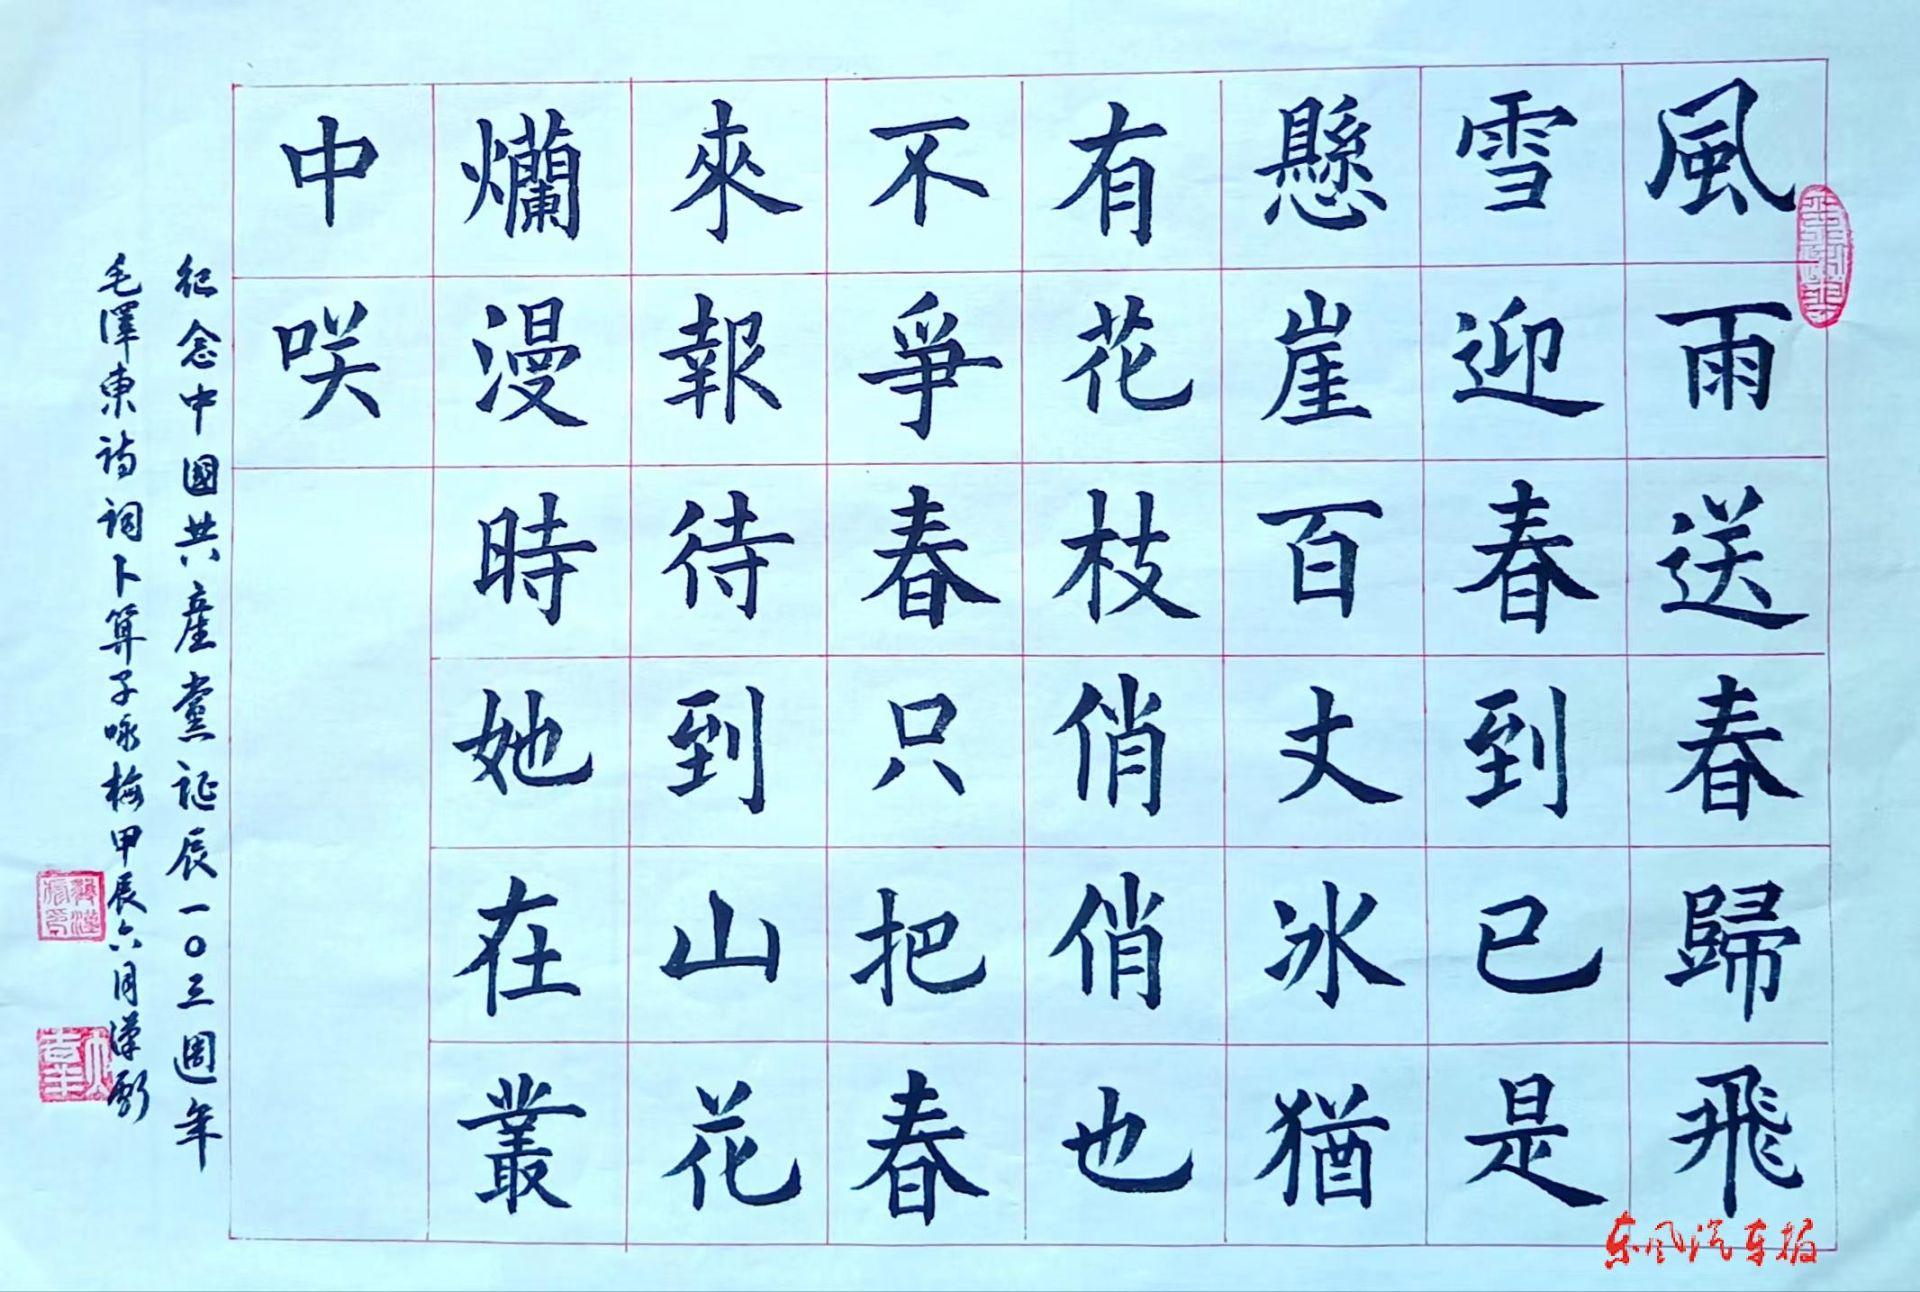 風雨送春歸飛
雪迎春到已是
懸崖百丈冰猶
有花枝俏俏也
不爭春只把春
來報待到山花
爛漫時她在叢
中咲
纪念中國共產黨诞辰一〇三週年
毛澤東詩詞卜算子咏梅甲辰六月漢
东风汽车报